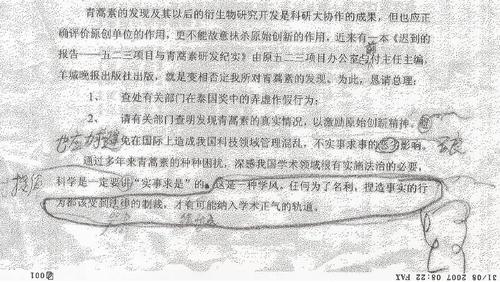 青蒿素的发现及其以后的衍生物研究开发是科研大协作的成果，但也应正
确评价原创单位的作用，更不能故意抹杀原始创新的作用，近来有一本《迟到的
报告——五二三项目与青蒿素研发纪实》由原五二三项目办公室与付主任主编，
前
羊城晚报出版社出版，就是变相否定我所对青蒿素的发现。为此，恳请总理：
1、 查处有关部门在泰国奖中的弄虚作假行为；
2、 请有关部门查明发现青蒿素的真实情况，以激励原始创新精神。
免在国际上造成我国科技领域管理混乱，不实事求事的影响。
通过多年来青蒿素的种种困扰，深感我国学术领域很有实施法治的必要，
科学是一定要讲“实事求是”的。这是一种学风，任何为了名利，捏造事实的行
为都该受到法律的制裁，才有可能纳入学术正气的轨道。
31/08 2007 08:22 FAX
001